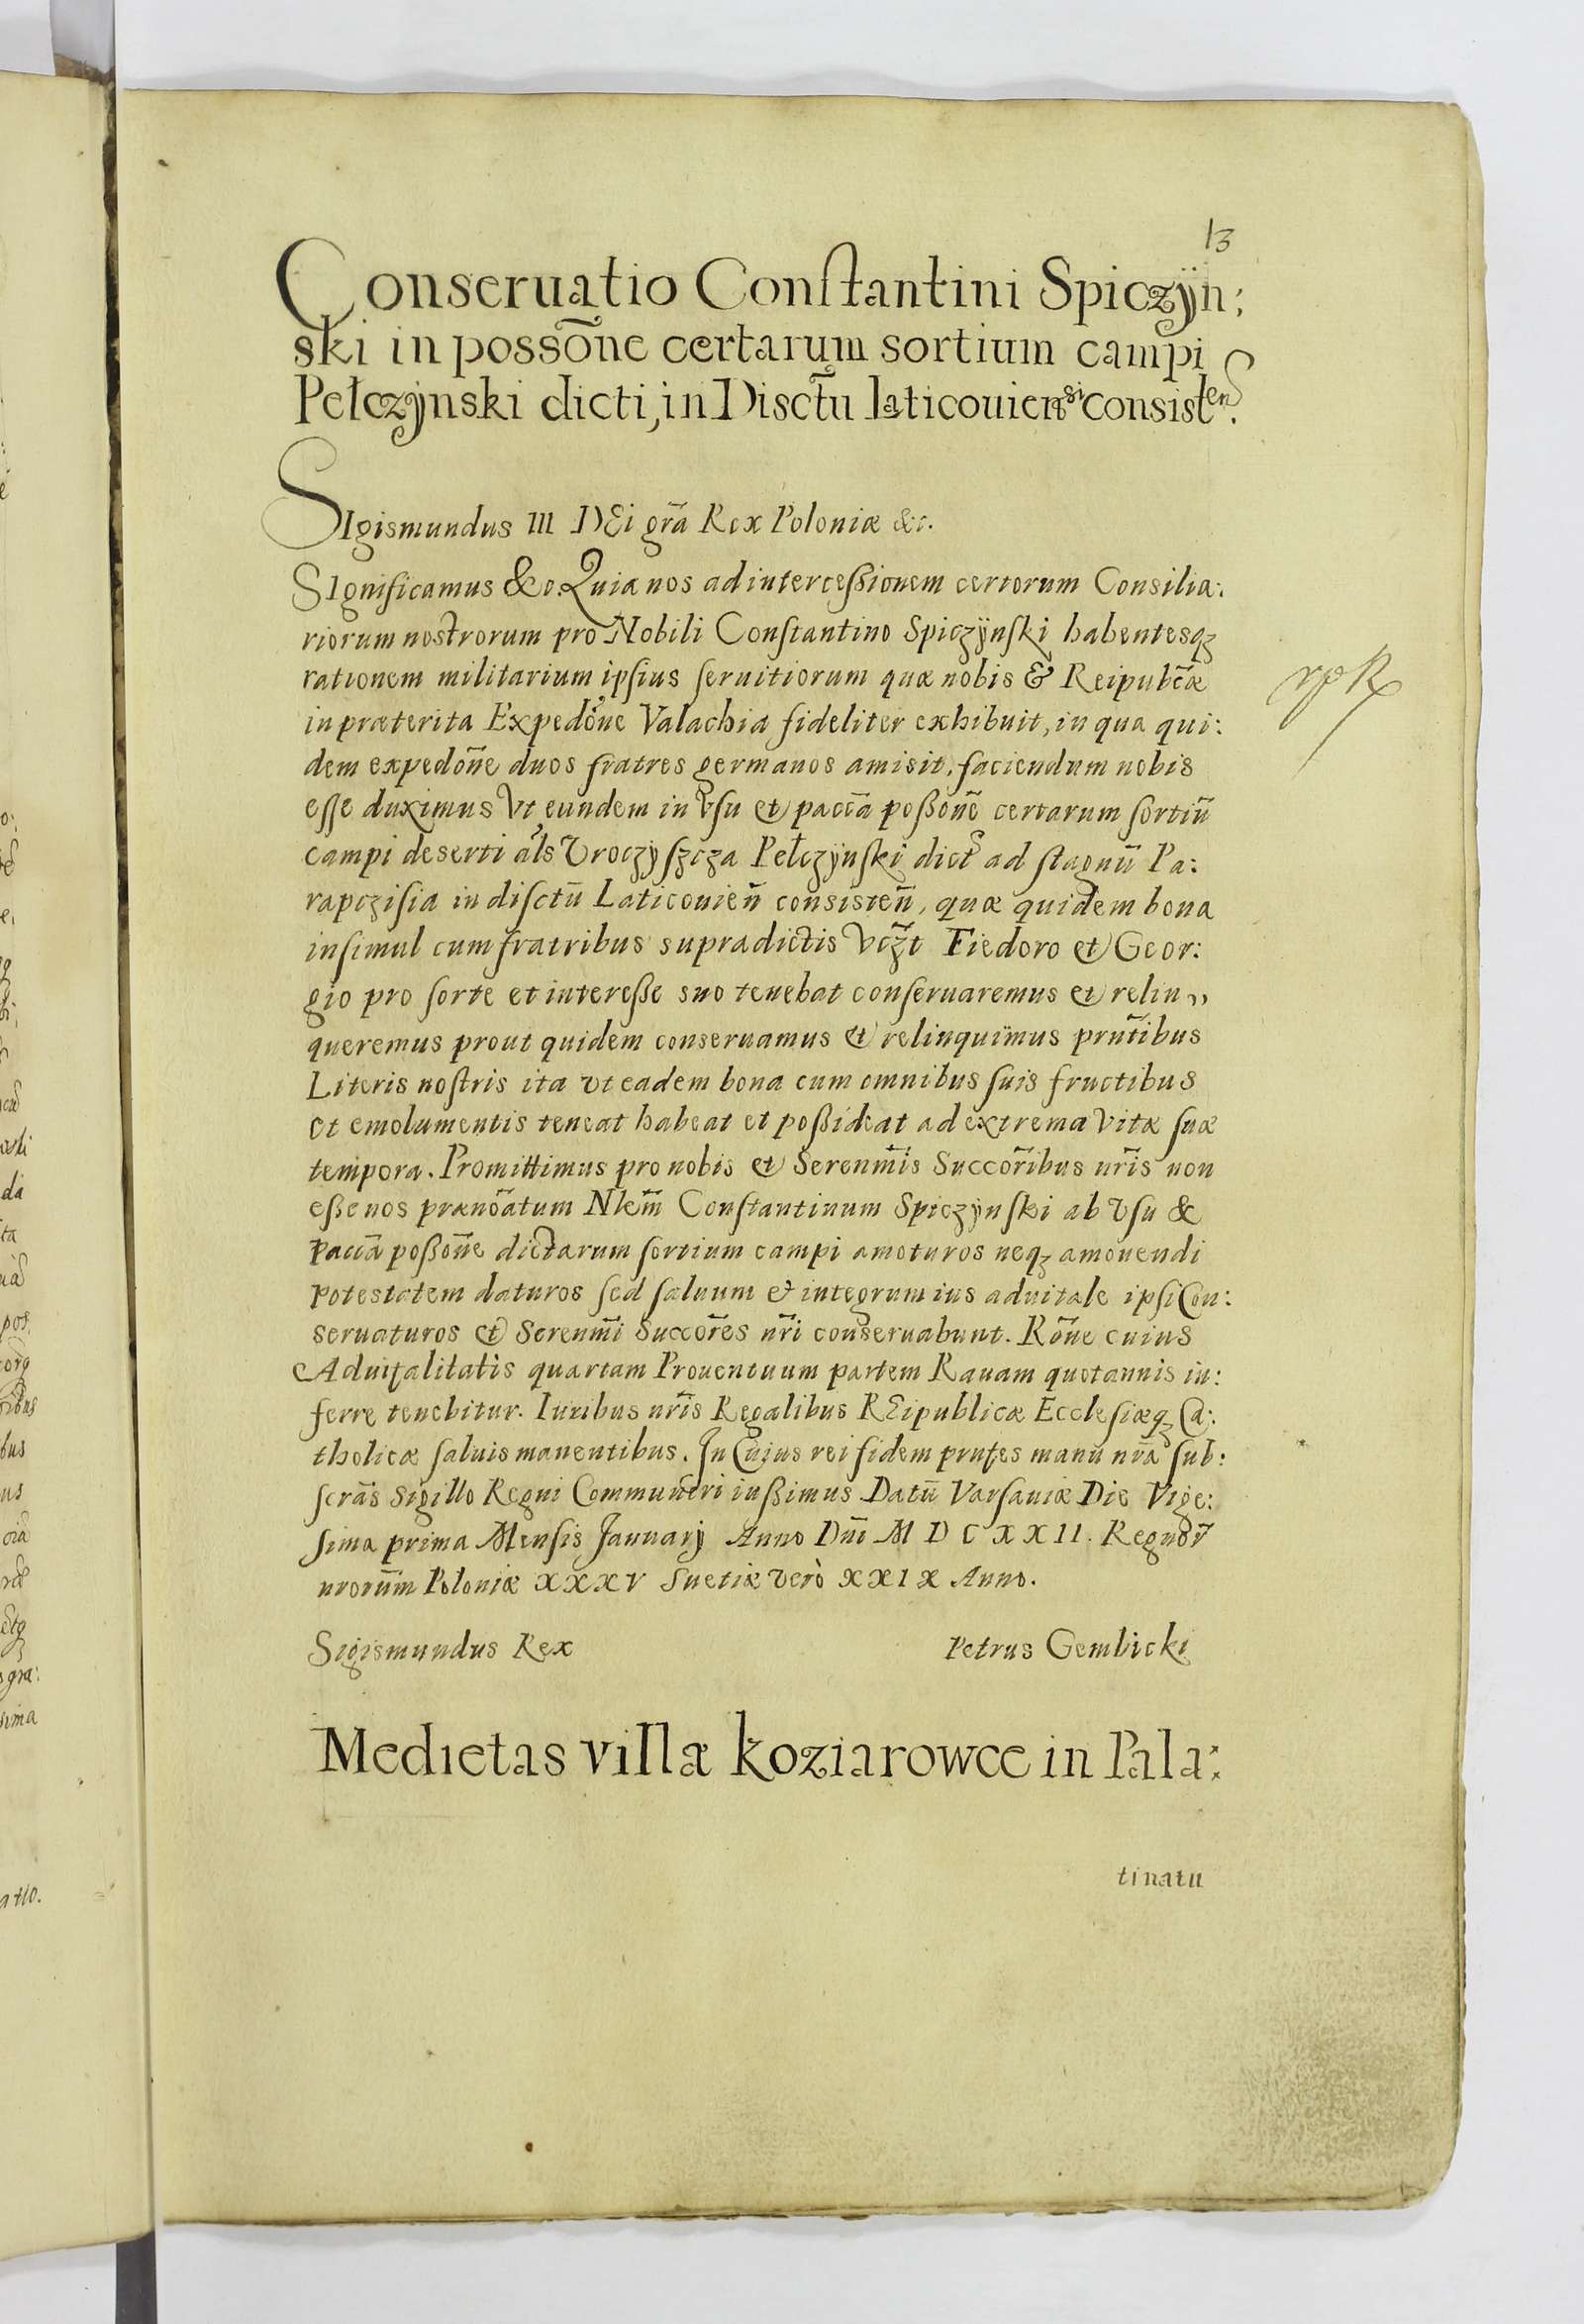 13
Conseruatio Conſtantini Spiczÿn:
ski in possōne certarum sortium campi
Pełczÿnski dicti, in Disctū laticouiensi consisten.
SIgismundus III DEi grã Rex Poloniæ &c.
SIgnificamus &c. Quia nos ad interceßionem certorum Consilia:
riorum nostrorum pro Nobili Conſtantino Spiczÿnſki habentesqȝ
rationem militarium ipſius ſeruitiorum quæ nobis & Reipubcæ
in præterita Expedōne Valachia fideliter exhibuit, in qua qui:
dem expedōne duos fratres germanos amisit, faciendum nobis
eſſe duximus Vt eundem in Vſu et paccã poßōne certarum ſortiū
campi deserti als Vroczyſzcza Pełczÿnſki dict ad ſtagnū Pa:
rapczisia in diſctū Laticouien consisten, quæ quidem bona
inſimul cum fratribus supradictis Vczt Fiedoro et Geor:
gio pro ſorte et intereße suo tenebat conſeruaremus et relin„
queremus prout quidem conseruamus et relinquimus prntibus
Literis noſtris ita vt eadem bona cum omnibus ſuis fructibus
et emolumentis teneat habeat et poßideat ad extrema vitæ ſuæ
tempora. Promittimus pro nobis et Serenmis Succoribus nris non
eße nos prænoatum Nlem Conſtantinum Spiczynſki ab Vſu &
paccã poßōne dictarum ſortium campi amoturos neqȝ amouendi
potestatem daturos ſed ſaluum et integrum ius aduitale ipſi Con:
seruaturos et Serenmi Succores nri conseruabunt. Rōne cuius
Aduitalitatis quartam Prouentuum partem Rauam quotannis in:
ferre tenebitur. Iuribus nris Regalibus REipublicæ Eccleſiæqȝ Ca:
tholicæ ſaluis manentibus. In Cujus rei fidem prntes manu nra ſub:
ſcras Sigillo Regni Communeri iußimus Datū Varſauiæ Die Vige:
ſima prima Menſis Januarij Anno Dni M D C X X II. Regnor
nrorum Poloniæ XXXV Suetiæ verò XXIX Anno.
Sigismundus Rex Petrus Gembicki
Medietas villæ koziarowce in Pala:
tinatu